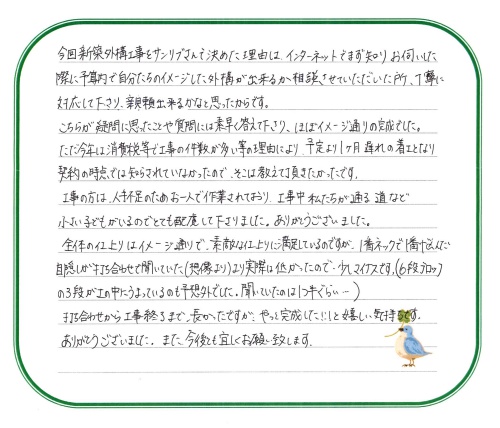 今回新築外構工事をサンリブさんで決めた理由は、インターネットでまず知り、お伺いした
際に予算内で自分たちのイメージした外構が出来るか相談させていただいた所、丁寧に
対応して下さり、親頼出来るかなと思ったからです。
こちらが疑問に思ったことや質問には素早く答えて下さり、ほぼイメージ通りの完成でした。
ただ今年は消費税等で工事の件数が多い等の理由により、予定より1ヶ月遅れの着工となり
契約の時点では知らされていなかったので、そこは教えて頂きたかったです。
工事の方は、人手不足のためお一人で作業されており、工事中 私たちが通る道など
小さい子どもがいるのでとても配慮して下さりました。ありがとうございました。
全体の仕上りはイメージ通りで、素敵な仕上りに満足しているのですが、1番ネックで1番悩んだ
目隠しが打ち合わせで聞いていた(想像より)より実際は低かったので少しマイナスです。(6段ブロック
の3段が土の中にうまっているのも予想外でした。聞いていたのは1つ半ぐらい…)
打ち合わせから工事終了まで、長かったですが、やっと完成した!!と嬉しい気持ちです。
ありがとうございました。また、今後も宜しくお願い致します。